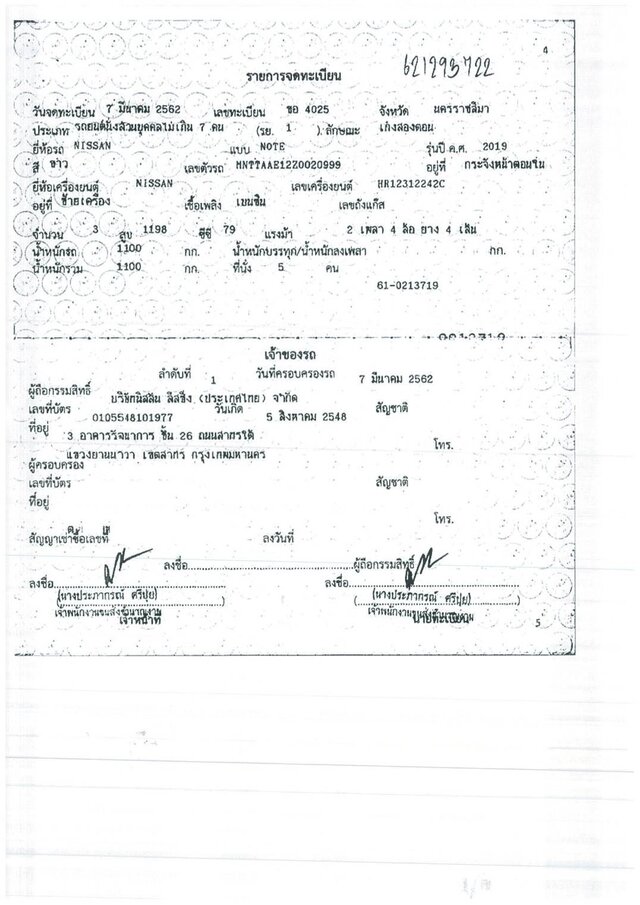 4
621293722
รายการจดทะเบียน
วันจดทะเบียน 7 มีนาคม 2562 เลขทะเบียน ขอ 4025 จังหวัด นครราชสีมา
ประเภท รถยนต์นั่งส่วนบุคคลไม่เกิน 7 คน (รย. 1 ) ลักษณะ เก๋งสองตอน
ยี่ห้อรถ NISSAN แบบ NOTE รุ่นปี ค.ศ. 2019
สี ขาว เลขตัวรถ MNTTAAE12Z0020999 อยู่ที่ กระจังหน้าตอนใน
ยี่ห้อเครื่องยนต์ NISSAN เลขเครื่องยนต์ HR12312242C
อยู่ที่ ซ้ายเครื่อง เชื้อเพลิง เบนซิน เลขถังแก๊ส
จำนวน 3 สูบ 1198 ซีซี 79 แรงม้า 2 เพลา 4 ล้อ ยาง 4 เส้น
น้ำหนักรถ 1100 กก. น้ำหนักบรรทุก/น้ำหนักลงเพลา กก.
น้ำหนักรวม 1100 กก. ที่นั่ง 5 คน
61-0213719
เจ้าของรถ
ลำดับที่ 1 วันที่ครอบครองรถ 7 มีนาคม 2562
ผู้ถือกรรมสิทธิ์ บริษัทนิสสัน ลีสซิ่ง (ประเทศไทย) จำกัด
เลขที่บัตร 0105548101977 วันเกิด 5 สิงหาคม 2548 สัญชาติ
ที่อยู่ 3 อาคารรัจนาการ ชั้น 26 ถนนสาทรใต้
โทร.
แขวงยานนาวา เขตสาทร กรุงเทพมหานคร
ผู้ครอบครอง
เลขที่บัตร สัญชาติ
ที่อยู่
โทร.
สัญญาเช่าซื้อเลขที่ ลงวันที่
ลงชื่อ ผู้ถือกรรมสิทธิ์
ลงชื่อ ลงชื่อ
(นางประภากรณ์ ศรีปุย) (นางประภากรณ์ ศรีปุย)
เจ้าพนักงานขนส่งชำนาญงาน เจ้าพนักงานขนส่งชำนาญงาน
เจ้าหน้าที่ นายทะเบียน
5